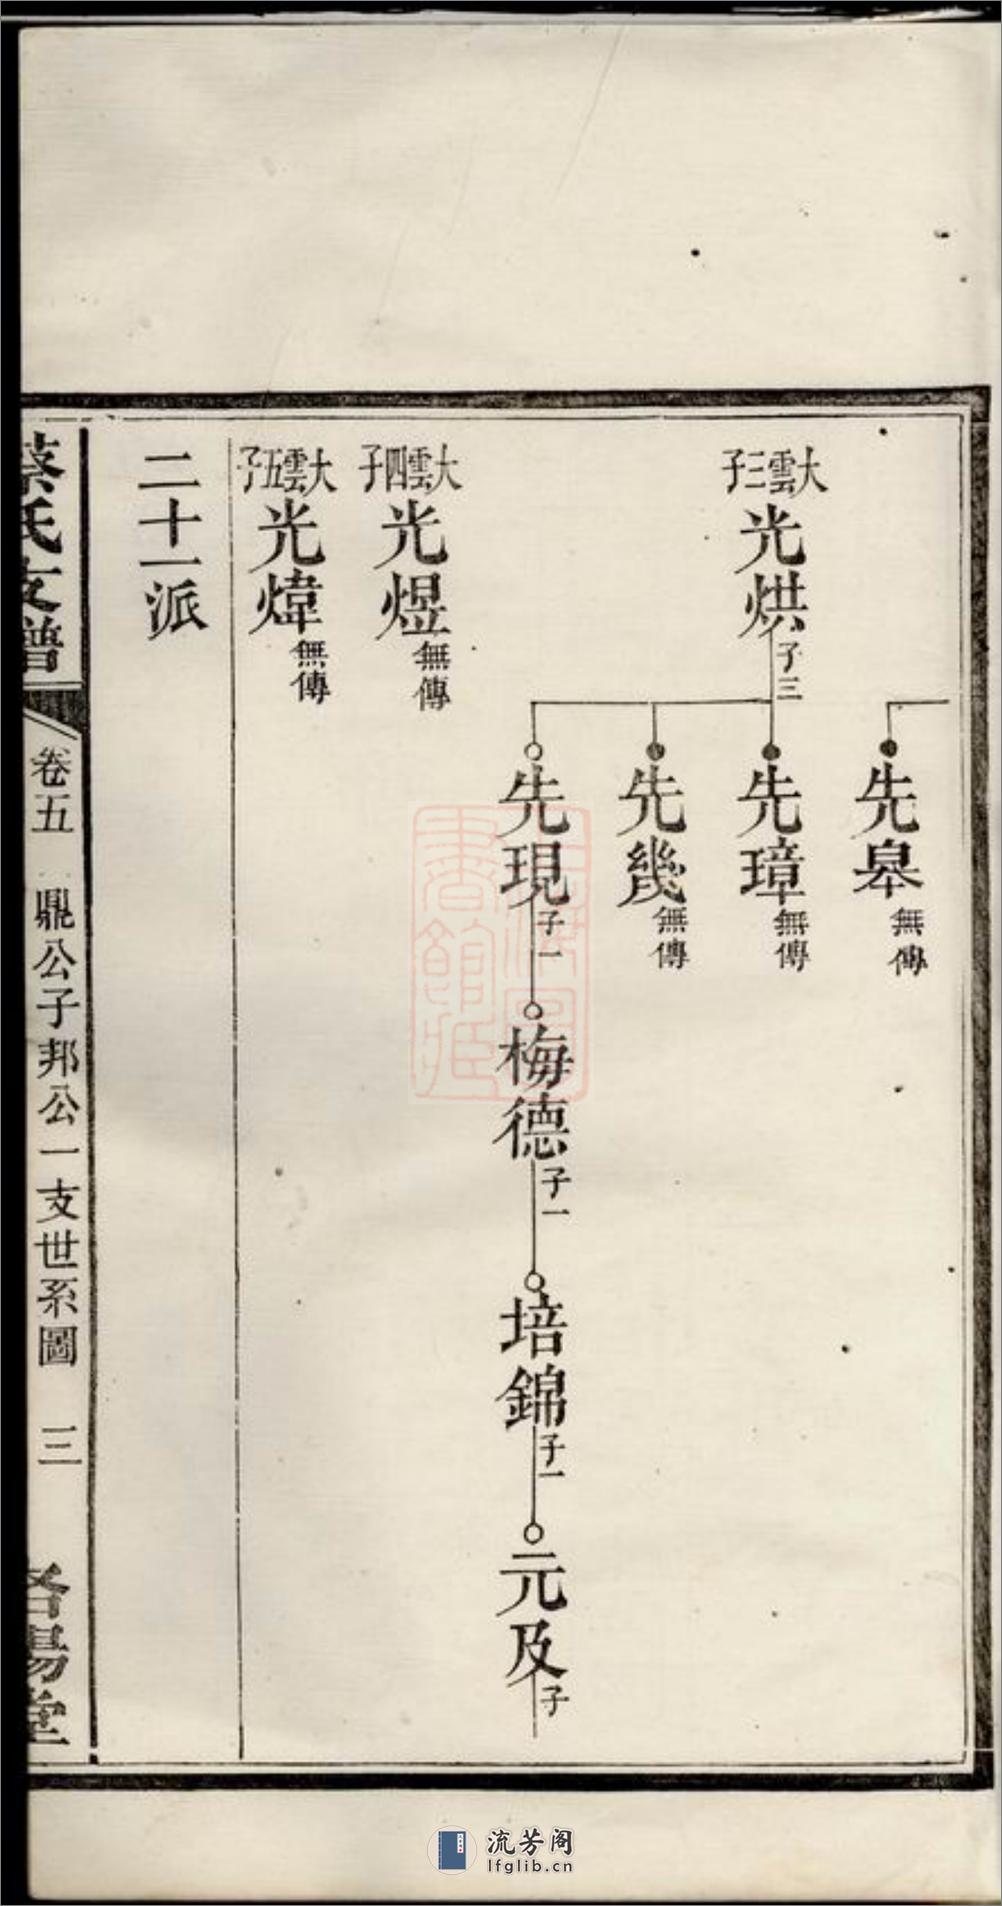 先皋 無傳
大雲三子 光烘 子三
先璋 無傳
先幾 無傳
先現 子一
梅德 子一
培錦 子一
元及 子
大雲四子 光煜 無傳
大雲五子 光煒 無傳
二十一派
蔡氏支譜 卷五 鼎公子邦公一支世系圖 三 洛陽堂
流芳阁
lfglib.cn